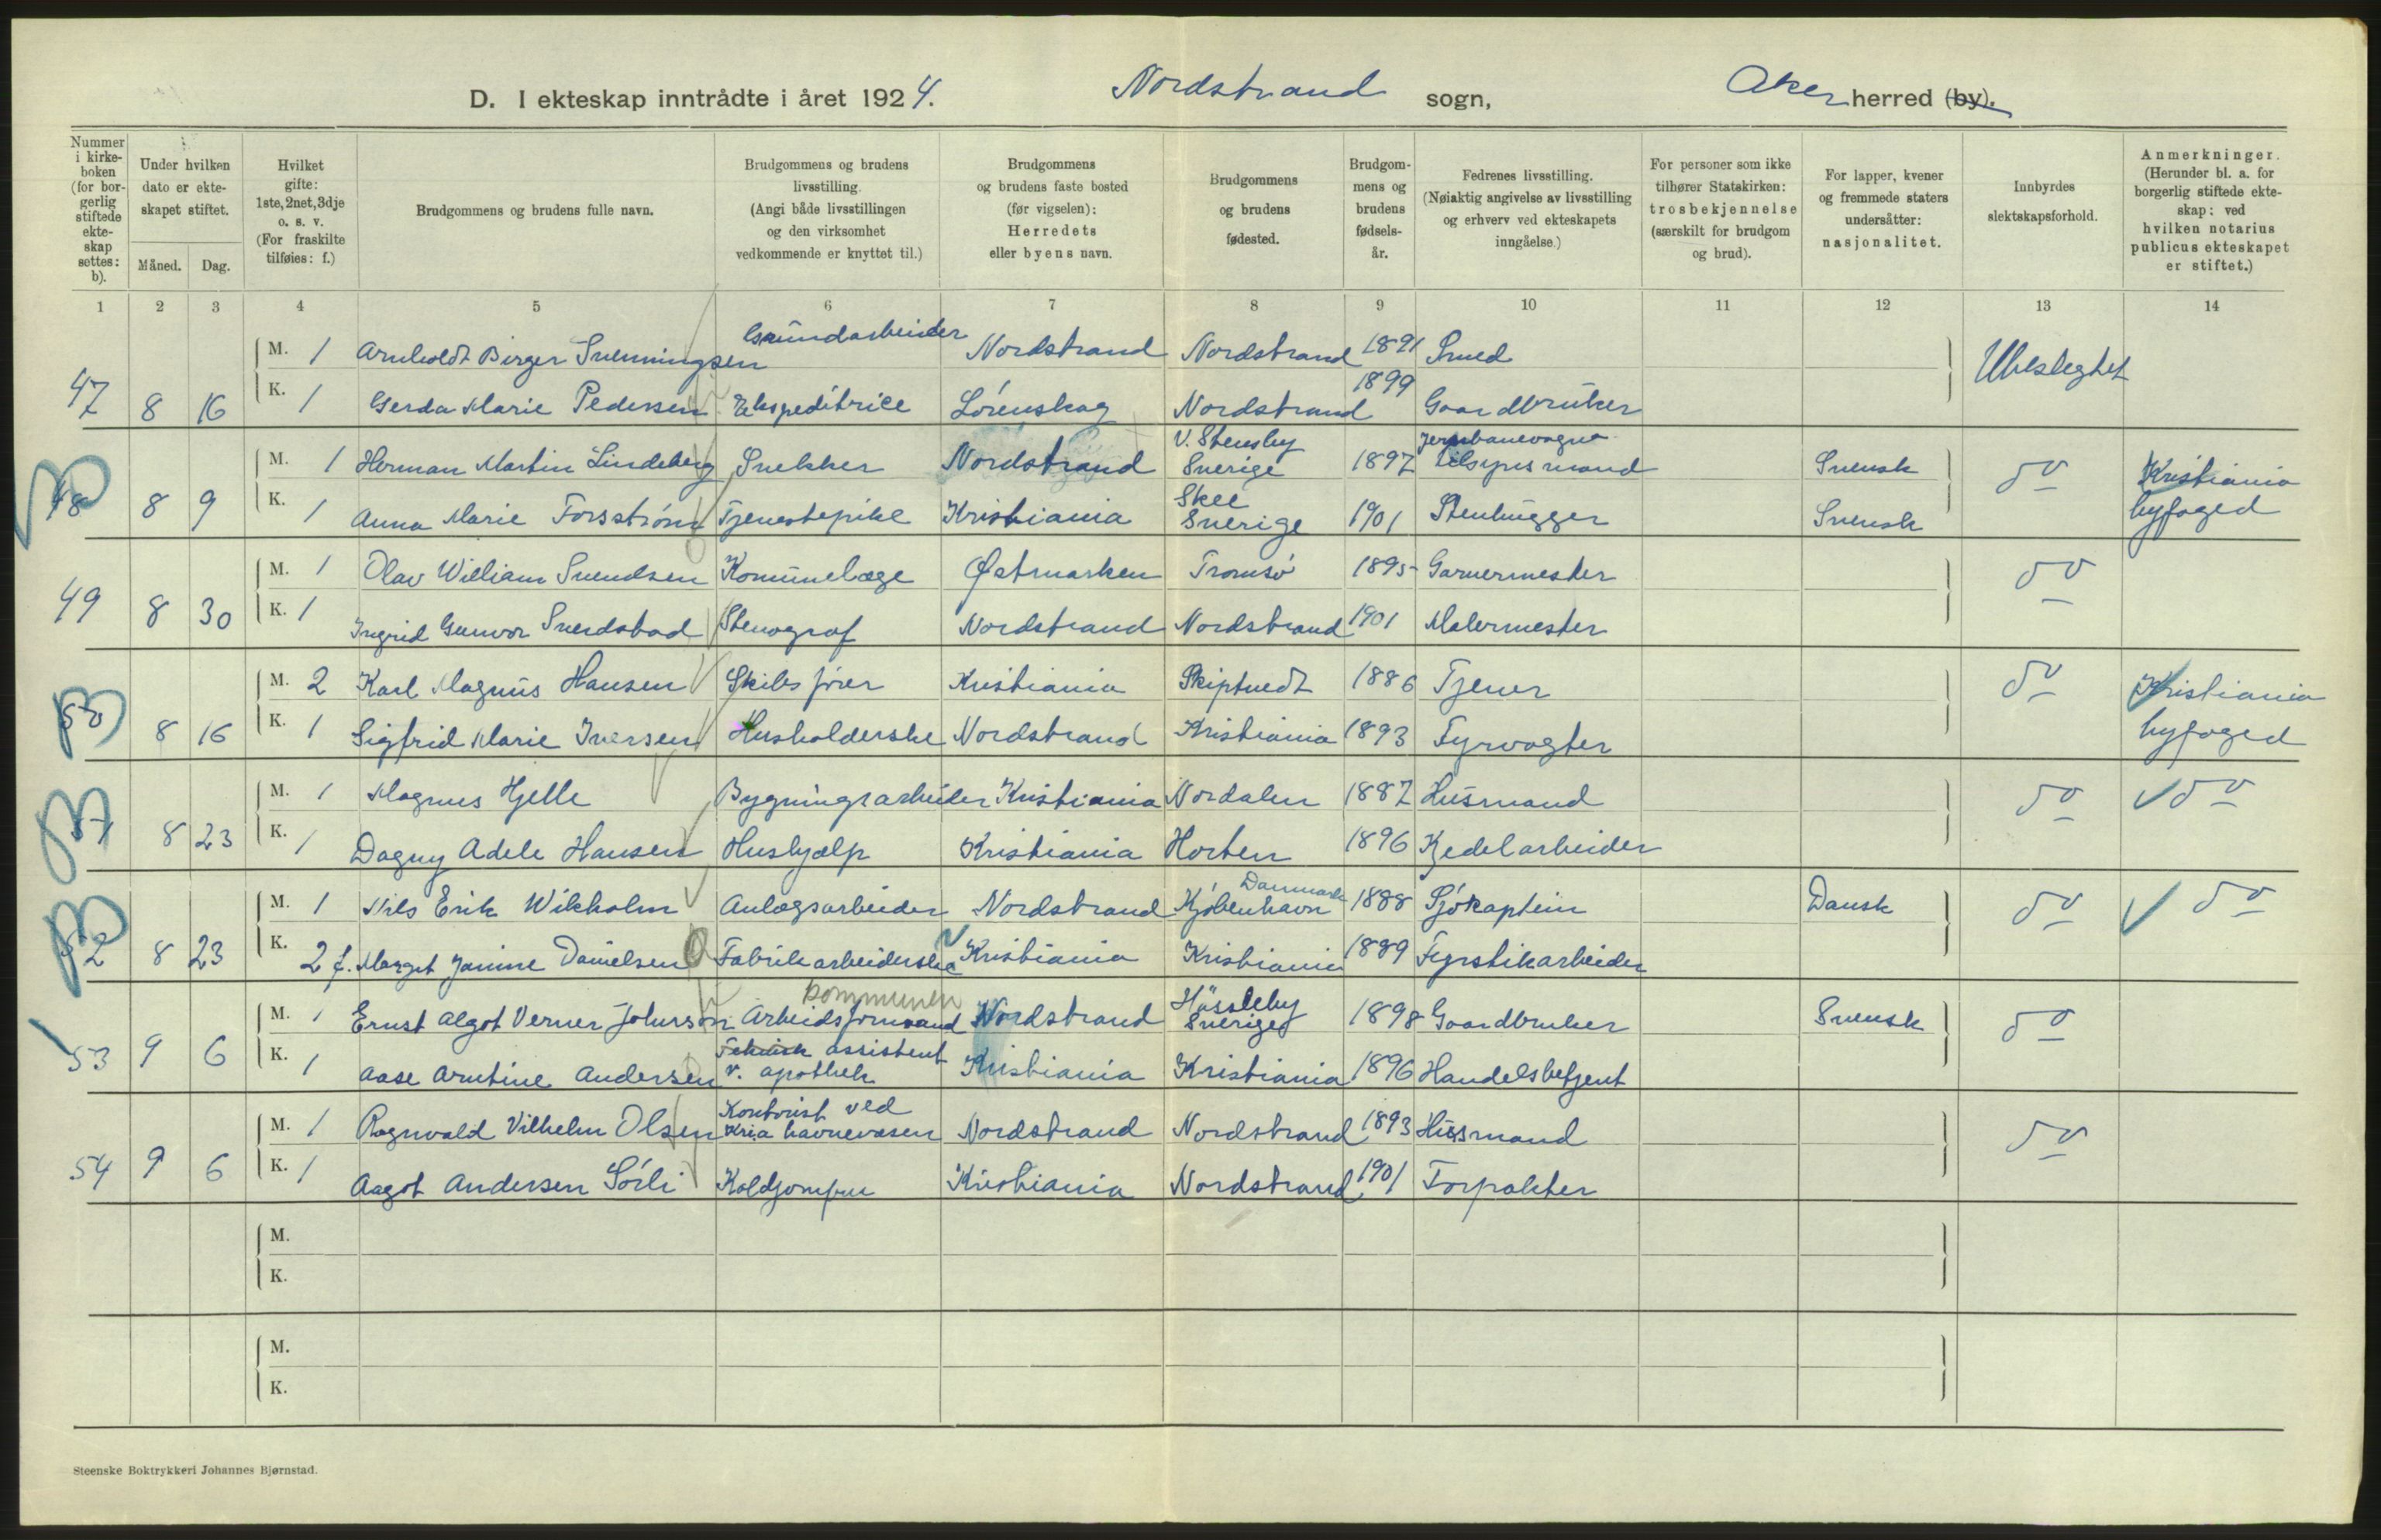 D. I ekteskap inntrådte i året 1924. Nordstrand sogn, Aker herred (by).
Nummer i kirkeboken (for borgerlig stiftede ekteskap settes: b).
Under hvilken dato er ekteskapet stiftet.
Måned. Dag.
Hvilket gifte: 1ste, 2net, 3dje o. s. v. (For fraskilte tilføies: f.)
Brudgommens og brudens fulle navn.
Brudgommens og brudens livsstilling. (Angi både livsstillingen og den virksomhet vedkommende er knyttet til.)
Brudgommens og brudens faste bosted (før vigselen): Herredets eller byens navn.
Brudgommens og brudens fødested.
Brudgommens og brudens fødselsår.
Fedrenes livsstilling. (Nøiaktig angivelse av livsstilling og erhverv ved ekteskapets inngåelse.)
For personer som ikke tilhører Statskirken: trosbekjennelse (særskilt for brudgom og brud).
For lapper, kvener og fremmede staters undersåtter: nasjonalitet.
Innbyrdes slektskapsforhold.
Anmerkninger. (Herunder bl. a. for borgerlig stiftede ekteskap: ved hvilken notarius publicus ekteskapet er stiftet.)
1 2 3 4 5 6 7 8 9 10 11 12 13 14
M. 1 Arnholdt Birger Svenningsen Grundarbeider Nordstrand Nordstrand 1891 Smed Ubeslegtet
47 8 16 K. 1 Gerda Marie Pedersen Ekspeditrice Lørenskog Nordstrand 1899 Gaardbruker
M. 1 Herman Martin Lindeberg Snekker Nordstrand V. Stensby Sverige 1897 Jernbanevogns tilsynsmand Svensk do Kristiania
48 8 9 K. 1 Anna Marie Forsstrøm Tjenestepike Kristiania Skee Sverige 1901 Stenhugger Svensk byfoged
M. 1 Olav William Svendsen Komunelæge Østmarken Tromsø 1895 Garvermester do
49 8 30 K. 1 Ingrid Gunvor Sverdstad Stenograf Nordstrand Nordstrand 1901 Malermester
M. 2 Karl Magnus Hansen Skibsfører Kristiania Skiptvedt 1886 Tjener do Kristiania
50 8 16 K. 1 Sigfrid Marie Iversen Husholderske Nordstrand Kristiania 1893 Fyrvogter byfoged
M. 1 Magnus Hjelle Bygningsarbeider Kristiania Nordalen 1887 Husmand do do
51 8 23 K. 1 Dagny Adele Hansen Hushjælp Kristiania Horten 1896 Kjedelarbeider
M. 1 Nils Erik Wikholm Anlægsarbeider Nordstrand Kjøbenhavn Danmark 1888 Sjøkaptein Dansk do do
52 8 23 K. 2 f. Margit Janine Danielsen Fabrikarbeiderske Kristiania Kristiania 1889 Fyrstikarbeider
M. 1 Ernst Algot Verner Johnsson Arbeidsformand kommunen Nordstrand Hässleby Sverige 1898 Gaardbruker Svensk do
53 9 6 K. 1 Aase Arntine Andersen Teknisk assistent v. apothek Kristiania Kristiania 1896 Handelsbetjent
M. 1 Ragnvald Vilhelm Olsen Kontorist ved Kria havnevæsen Nordstrand Nordstrand 1893 Husmand do
54 9 6 K. 1 Aagot Andersen Sørli Koldjomfru Kristiania Nordstrand 1901 Forpakter
M.
K.
M.
K.
Steenske Boktrykkeri Johannes Bjørnstad.